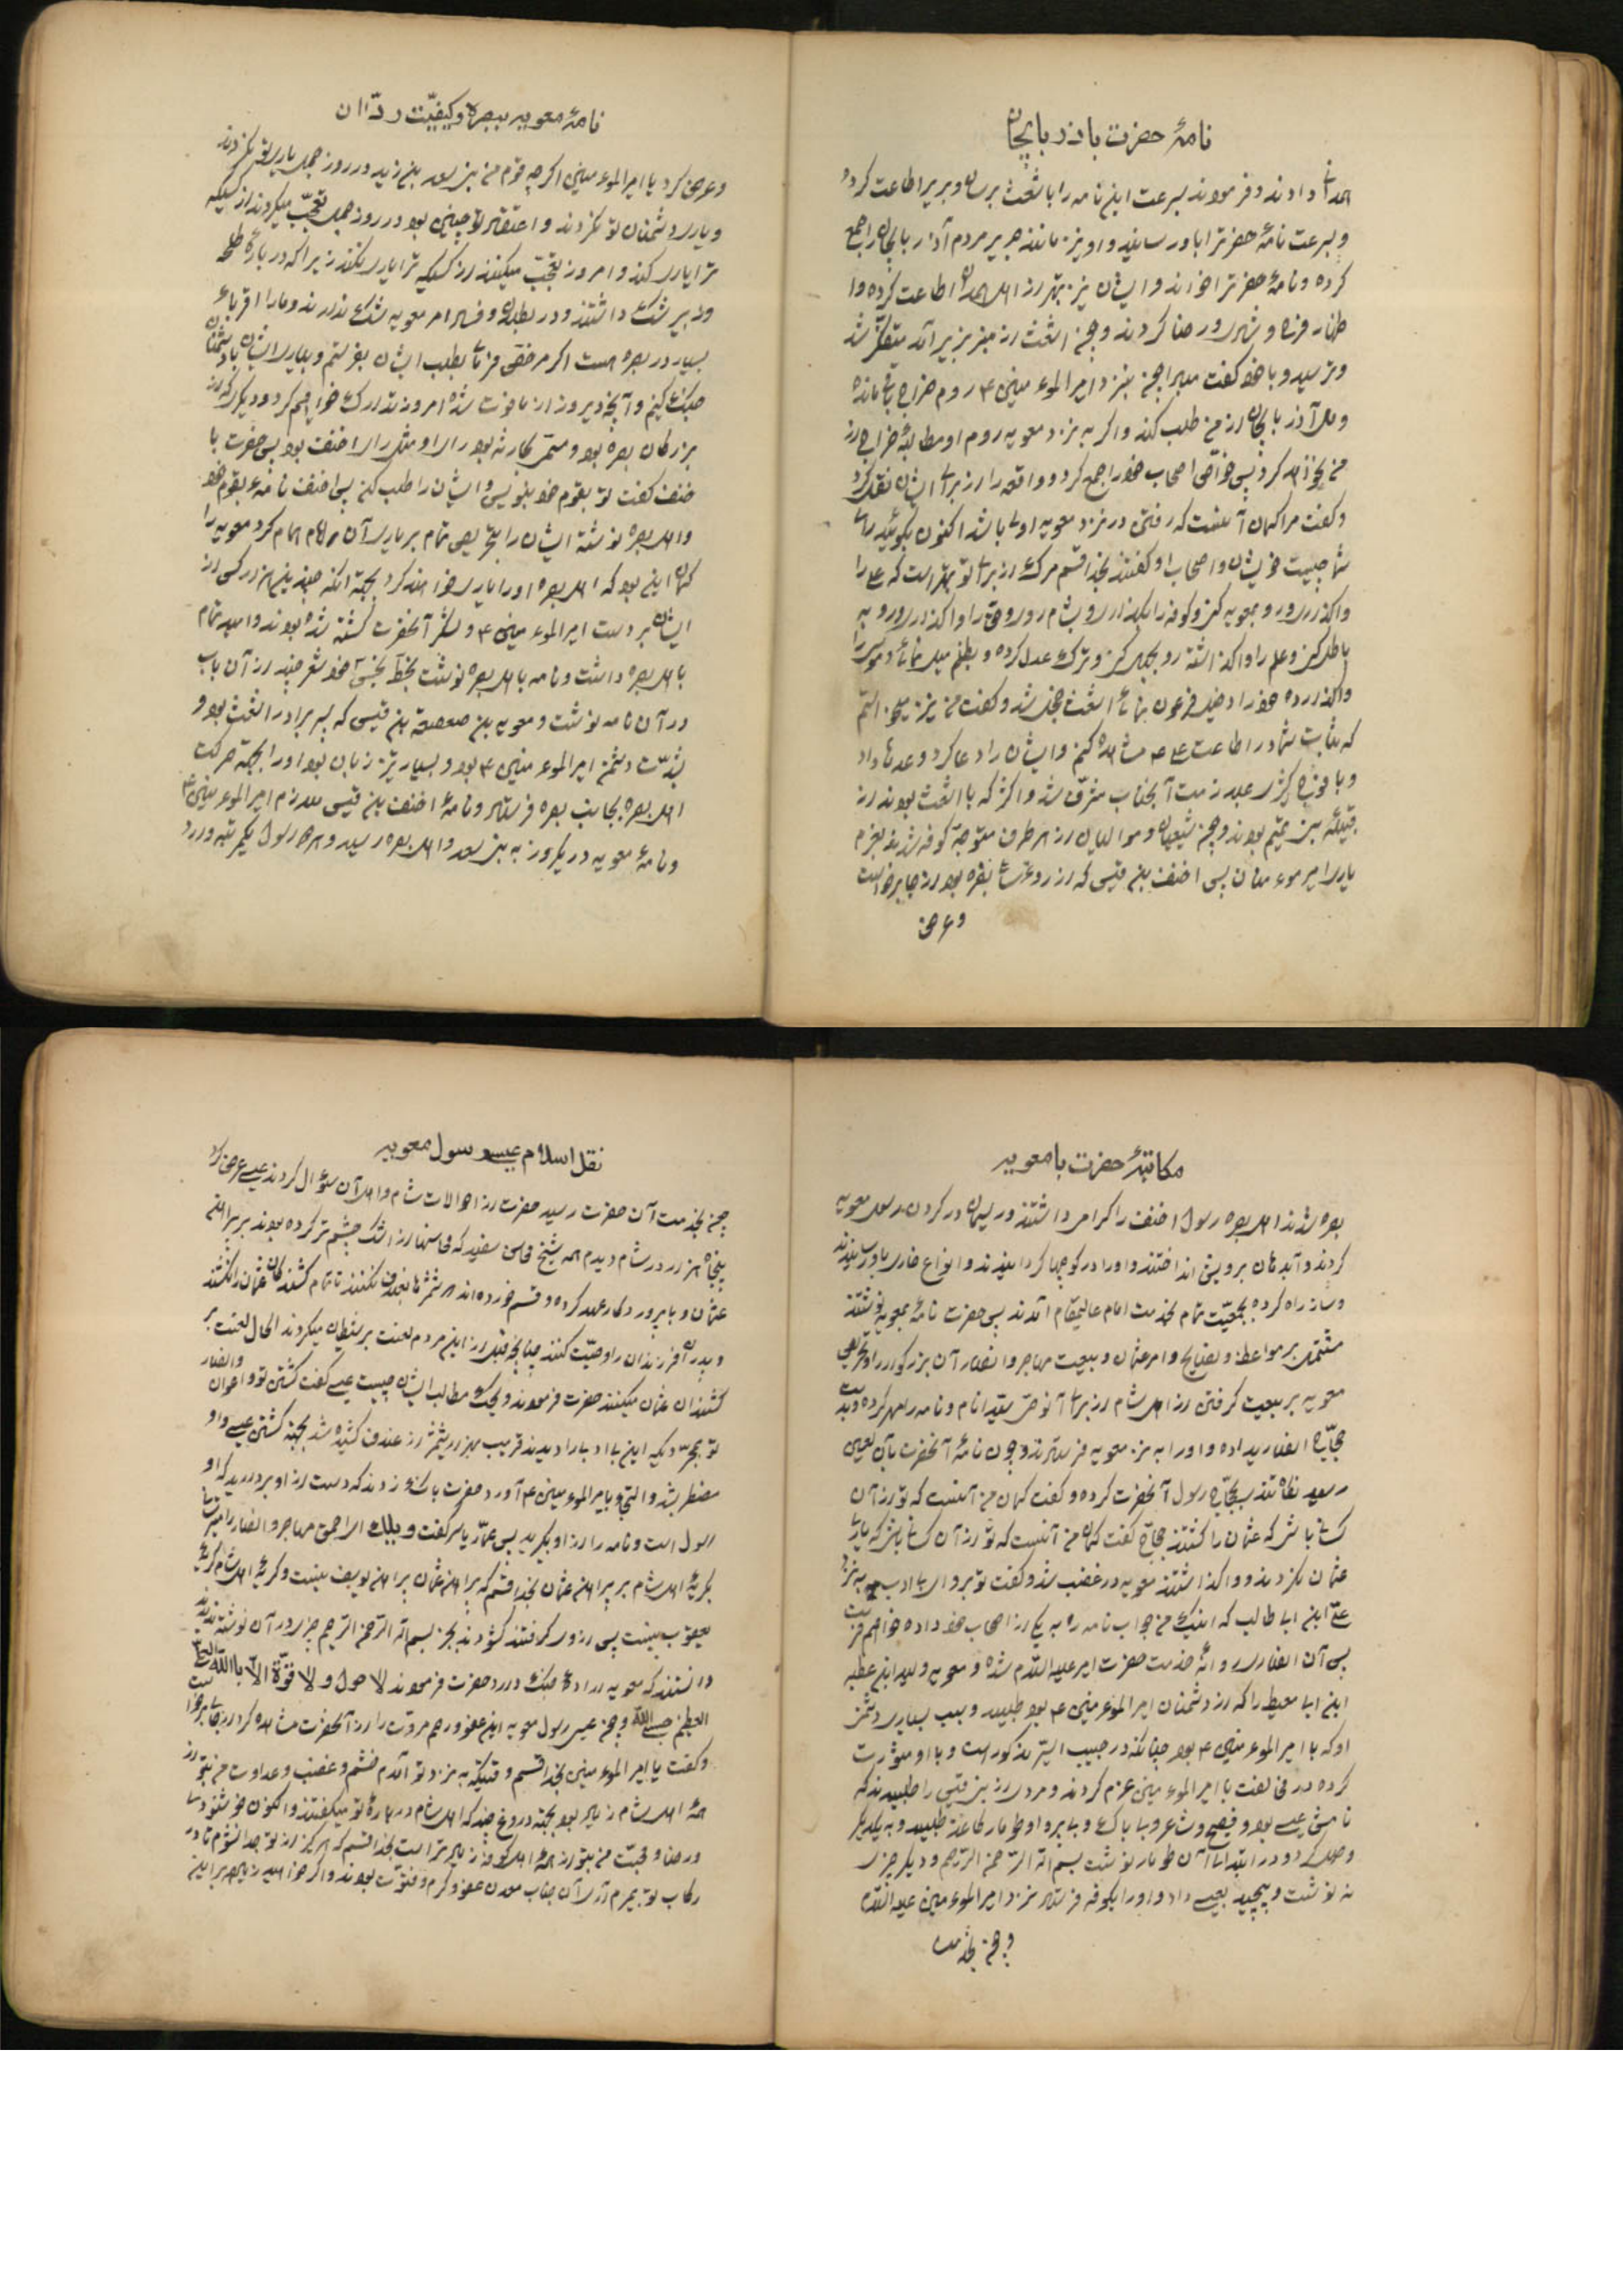 نامهٔ حضرت باذربایجان
دادند و فرمودند بسرعت این نامه را باشعث برسان و بریر اطاعت کرده
و بسرعت نامهٔ حضرترا باو رسانید و او نیز مانند جریر مردم آذربایجانرا جمع
کرده و نامهٔ حضرترا خواند و ایشان نیز بهتر از اهل همدان اطاعت کرده و ا
ظهار فرح و شادی و رضا کردند و چون اشعث از منبر بزیر آمد متفکّر شد
و ترسید و با خود کفت مبرا چون بنزد امیرالموءمنین ۴ روم خراج باقی مانده
و مال آذربایجان از من طلب کند و اکر به نزد معویه روم او مطالبهٔ خراج از
من نخواهد کرد پس خواصّ اصحاب خود را جمع کرد و واقعه را از برای ایشان نقل کرد
و کفت مرا کمان آنست که رفتن در نزد معویه اولی باشد اکنون بکوئید رای
شما چیست خویشان و اصحاب او کفتند بخدا قسم مرک از برای تو بهتر است که علی را
واکذاری و رو بمعویه کنی و کوفه را بکذاری و بشام روی و حق را واکذاری و رو به
باطل کنی و علم را واکذاشته رو بجهل کنی و ترک عدل کرده و بظلم میل نمائی و موسی را
واکذارده خود را دخیل فرعون نمائی اشعث خجل شد و کفت من نیز میخواستم
که ثبات شما در اطاعت علی ۴ مشاهده کنم و ایشان را دعا کرد و وعدها داد
و با فوج کثیری بملازمت آنجناب مشرّف شد و اکثر که با اشعث بودند از
قبیلهٔ بنی تمیم بودند و چون شیعیان و موالیان از هر طرف متوجّه کوفه شدند بعزم
یاری امیر موءمنان پس احنف بن قیس که از روءسای بصره بود از جا برخواست
و عرض
نامهٔ معویه ببصره و کیفیّت ردّ آن
و عرض کرد یا امیرالموءمنین اکرچه قوم من بنی سعد بن زید در روز جمل یاری تو نکردند
و یاری دشمنان تو نکردند و اعتقاد تو چنین بود در روز جمل تعجّب میکردند از کسیکه
ترا یاری کند و امروز تعجّب میکنند از کسیکه ترا یاری نکند زیرا که در بارهٔ طلحه
و زبیر شک داشتند و در بطلان و فساد امر معویه شک ندارند و ما را اقرباء
بسیار در بصره هست اکر مرخّص فرمائی بطلب ایشان بفرستم و بیاری ایشان با دشمنان
جنک کنیم و آنچه دیروز از ما فوت شده امروز تدارک خواهیم کرد و دیکری که از
بزرکان بصره بود و مستمر حارثه بود رای او مثل رای احنف بود پس حضرت با
حنف کفت تو بقوم خود بنویس و ایشان را طلب کن پس احنف نامه بقوم خود
و اهل بصره نوشته ایشان را تحریص تمام بر یاری آن امام همام کرد معویه را
کمان این بود که اهل بصره او را یاری خواهند کرد بجهة آنکه چندین هزار کس از
ایشان بر دست امیرالموءمنین ۴ و لشکر آنحضرت کشته شده بودند و امید تمام
باهل بصره داشت و نامه باهل بصره نوشت بخط نجس خود شعر چند از آن باب
در آن نامه نوشت و معویه بن صعصعة بن قیس که پسر برادر اشعث بود و
بشدّت دشمن امیرالموءمنین ۴ بود و بسیار تیز زبان بود او را بجهة حرکت
اهل بصره بجانب بصره فرستاد و نامهٔ احنف بن قیس ملازم امیرالموءمنین ۴
و نامهٔ معویه در یکروز به بنی سعد و اهل بصره رسید و هر دو رسول یکمرتبه وارد
مکاتبهٔ حضرت با معویه
بصره شدند اهل بصره رسول احنف را اکرام داشتند و ریسمان در کردن رسول معویه
کردند و آب دهان بر رویش انداختند و او را در کوچها کردانیدند و انواع خواری باو رسانیدند
و ساز راه کرده بجمعیّت تمام بخدمت امام عالیمقام آمدند پس حضرت نامهٔ بمعویه نوشتند
مشتمل بر مواعظ و نصایح و امر عثمان و بیعت مهاجر و انصار آن بزرکوار را و تحریص
معویه بر بیعت کرفتن از اهل شام از برای آنحضرت سیّد انام و نامه را مهر کرده بدست
حجّاج انصاری داده و او را به نزد معویه فرستادند و چون نامهٔ آنحضرت بآن لعین
رسید نظر تند بحجّاج رسول آنحضرت کرده و کفت کمان من آنست که تو از آن
کسانی باشی که عثمان را کشتند حجاج کفت کمان من آنست که تو از آن کسانی باشی که یاری
عثمان نکردند و واکذاشتند معویه در غضب شد و کفت تو برو ای بی ادب به نزد
علیّ ابن ابی طالب که اینک من جواب نامه را به یکی از اصحاب خود داده خواهم فرستاد
پس آن انصاری روانهٔ خدمت حضرت امیر علیه السّلام شده و معویه ولید ابن عقبه
ابن ابی معیط را که از دشمنان امیرالموءمنین ۴ بود طلبید و بسبب بسیاری دشمنی
او که با امیرالموءمنین ۴ بود چنانکه در حبیب السّیر مذکور است و با او مشورت
کرده در مخالفت با امیرالموءمنین عزم کردند و مردی از بنی قیس را طلبیدند که
نامش عیسی بود و فصیح و شاعر و بیباک و بی پروا و طومار کاغذ طلبید و به یکدیکر
وصل کرد و در ابتدای آن طومار نوشت بسم الله الرّحمن الرّحیم و دیکر چیزی
ننوشت و پیچید بعیسی داد و او را بکوفه فرستاد نزد امیرالموءمنین علیه السّلام
و چون بخدمت
نقل اسلام عیسی رسول معویه
چون بخدمت آن حضرت رسید حضرت از احوالات شام و اهل آن سؤال کردند عیسی عرض کرد
پنجاه هزار در شام دیدم همه شیخ محاسن سفید که محاسنها از اشک چشم تر کرده بودند بر پیراهن
عثمان و با پروردکار عهد کرده و قسم خورده اند که شمشیرها بغلاف نکنند تا تمام کشندکان عثمان را نکشند
و پدران فرزندان را وصیّت کنند چنانچه قبل از این مردم لعنت بر شیطان میکردند الحال لعنت بر
کشندکان عثمان میکنند حضرت فرمودند و بحک مطالب ایشان چیست عیسی کفت کشتن تو و اعوان و انصار
تو بمجرّد یکه این بی ادبی را دیدند قریب هزار شمشیر از غلاف کشیده شد بجهة کشتن عیسی و او
مضطر شد و التجا بامیرالموءمنین ۴ آورد حضرت بانک زدند که دست از او بردارید که او
رسول است و نامه را از او بکیرید پس عمّار یاسر کفت ویلک ای احمق مهاجر و انصار را میترسانی
بکریهٔ اهل شام بر پیراهن عثمان بخدا قسم که پیراهن عثمان پیراهن یوسف نیست و کریهٔ اهل شام کریهٔ
یعقوب نیست پس از وی کرفتند کشودند بجز بسم الله الرّحمن الرّحیم چیزی در آن نوشته ندیدند
دانستند که معویه ارادهٔ جنک دارد حضرت فرمودند لا حول و لا قوّة الّا باللّه العلیّ
العظیم حسبی اللّه و چون عیسی رسول معویه این عفو و رحم و مروّت را از آنحضرت مشاهده کرد از جا برخواست
و کفت یا امیرالموءمنین بخدا قسم وقتیکه به نزد تو آمدم خشم و غضب و عداوت من بتو از
همهٔ اهل شام زیاده بود بجهة دروغ چند که اهل شام در بارهٔ تو میکفتند و اکنون خوشنودی
و رضا و محبّت من بتو از همهٔ اهل کوفه زیاده تر است بخدا قسم که هرکز از تو جدا نشوم تا در
رکاب تو بمیرم از آن جناب معدن عفو و کرم و فتوّت بودند و اکر خواهید زیاده بر این